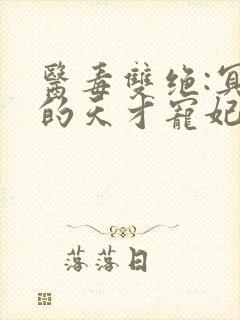 醫毒雙绝:冥
的天才寵妃
落落日